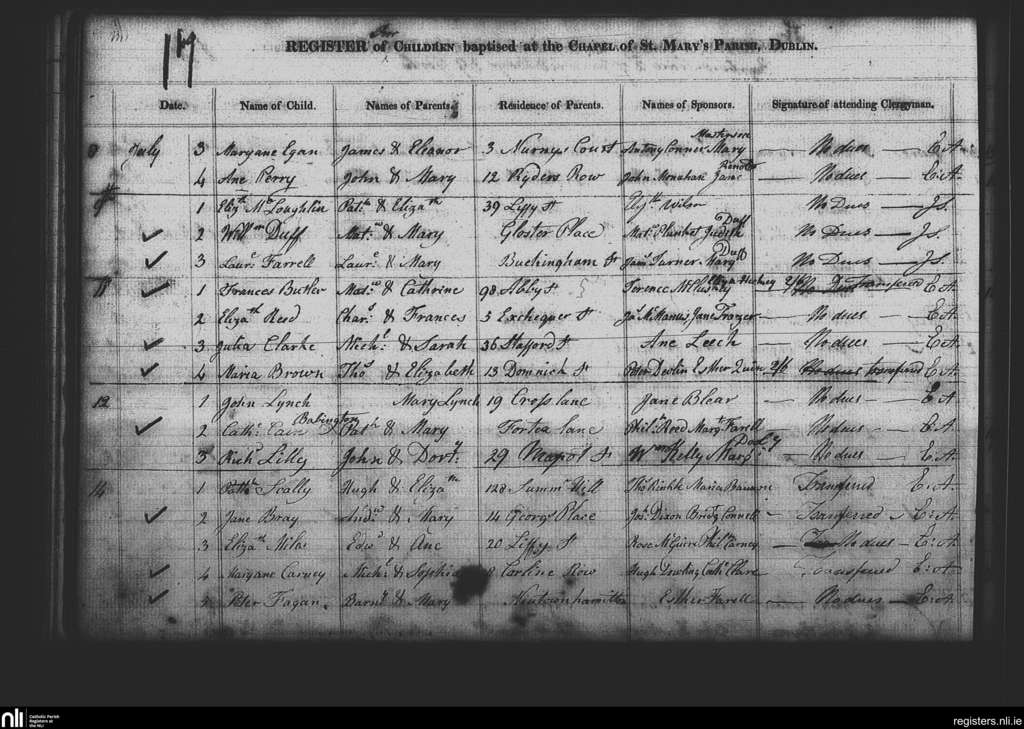 117
REGISTER of CHILDREN baptised at the CHAPEL of St. MARY'S PARISH, DUBLIN.
Date. Name of Child. Names of Parents. Residence of Parents. Names of Sponsors. Signature of attending Clergyman.
July 3 Maryane Egan James & Eleanor 3 Nurneys Court Antony Conner Mary Masterson — No dues — E.A.
4 Ane Perry John & Mary 12 Ryders Row John Monahan Jane — No dues — E.A.
1 Elizth McLoughlin Patk & Elizath 39 Liffy St No Dues — J.S.
2 Willm Duff Matw & Mary Gloster Place Matw Plunket Judith Duff No Dues — J.S.
3 Laurc Farrell Laurc & Mary Buckingham St Jams Turner Mary Duff No Dues — J.S.
11 1 Frances Butler Matw & Cathrine 98 Abby St Terence 2/6 Transfered E.A.
2 Elizath Reed Chars & Frances 5 Exchequer St Jas McManus Jane Frazer — No dues — E.A.
3 Julia Clarke Michl & Sarah 36 Stafford St Ane Leech — No dues — E.A.
4 Maria Brown Thos & Elizabeth 13 Domnick St Peter Devlin Esther Quin 2/6 No dues transfered E.A.
12 1 John Lynch Mary Lynch 19 Cross lane Jane Blear — No dues — E.A.
2 Cathe Cain Babington Patk & Mary Forten lane Phil Reed Margt Farell — No dues — E.A.
3 Richd Lilly John & Doroty 29 St Wm Kelly Mary — No dues — E.A.
14 1 Patk Scally Hugh & Elizath 128 Summr Hill Thos Maria Transfered E.A.
2 Jane Bray Andw & Mary 14 Georgs Place Jas Dixon Bridgt Connell — Transferred — E.A.
3 Elizath Miles Edwd & Ane 20 Liffy St Rose McGuire Phil Carney — No dues — E.A.
4 Maryane Carney Michl & Sophia Row Hugh Cathe Clare Transfered E.A.
Peter Fagan Barnd & Mary Newtownhamilton Esther Farell — No dues — E.A.
nli
Catholic Parish
Registers at
the NLI
registers.nli.ie